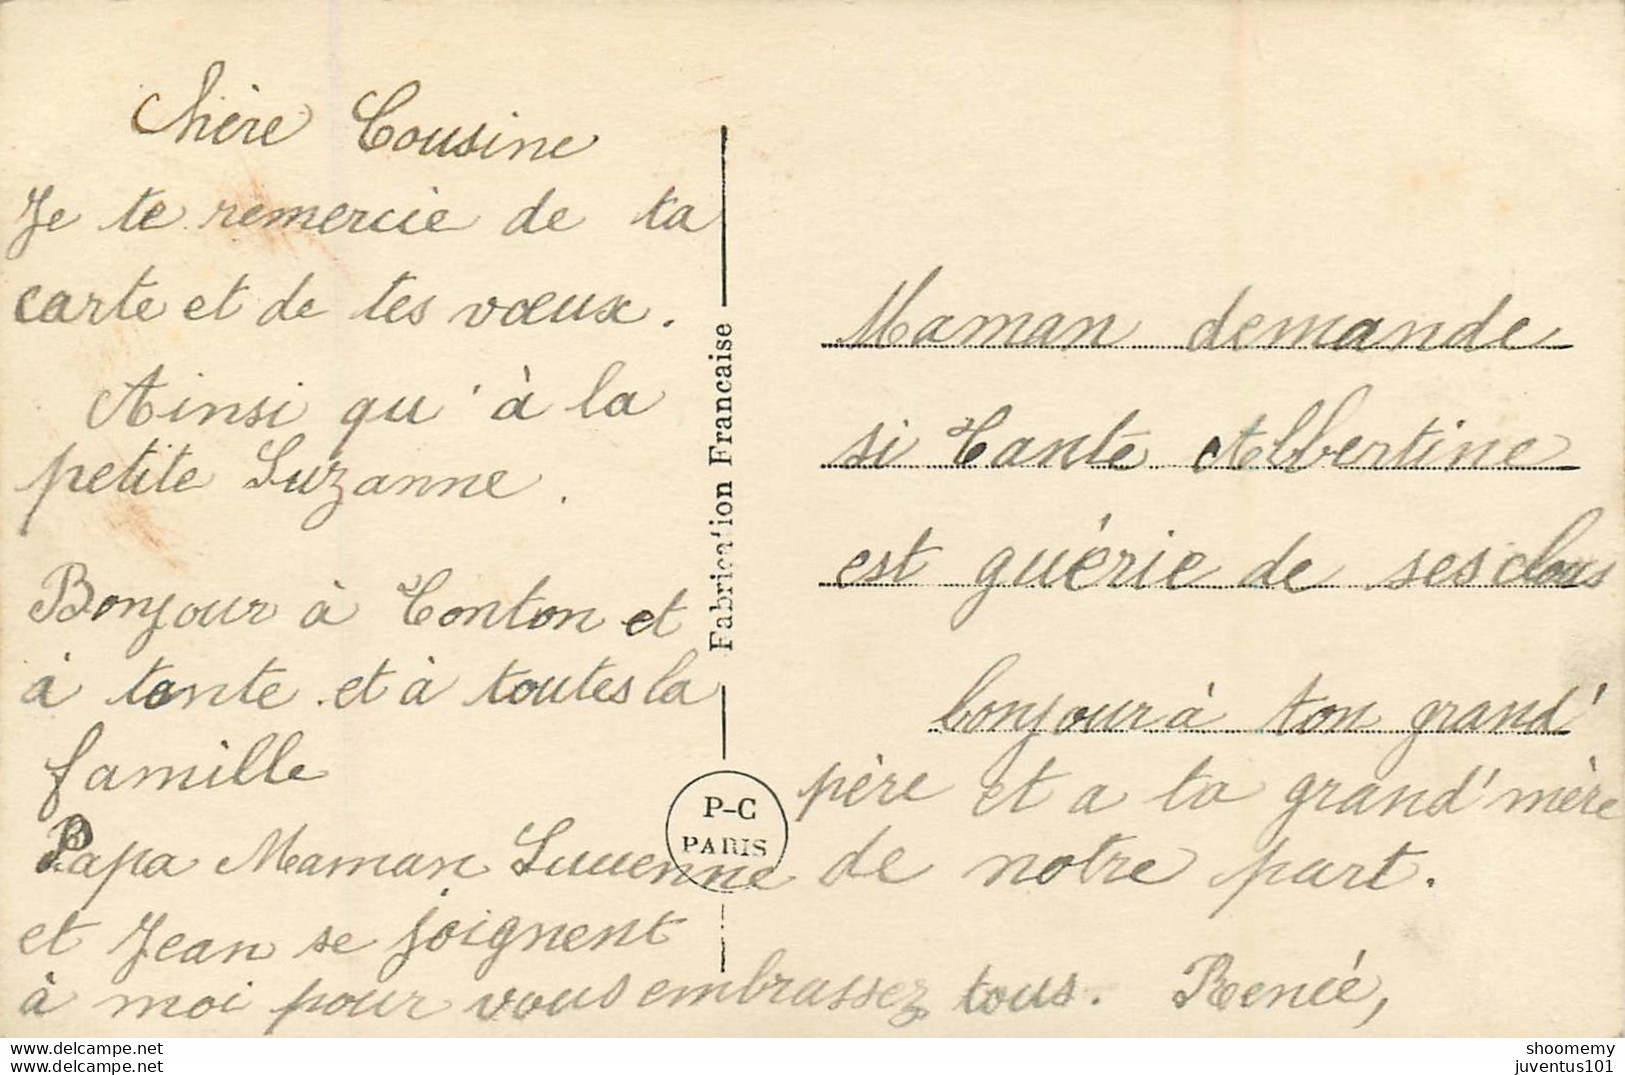 Chère Cousine
Je te remercie de ta
carte et de tes vœux.
Ainsi qu'à la
petite Suzanne.
Bonjour à Tonton et
à tante et à toutes la
famille
Papa Maman Lucienne
et Jean se joignent
à moi pour vous embrassez tous. Renée,
Fabrication Française
P-C
PARIS
Maman demande
si Tante Albertine
est guérie de ses clous
bonjour à ton grand'
père et a ta grand'mère
de notre part.
www.delcampe.net
shoomemy
juventus101